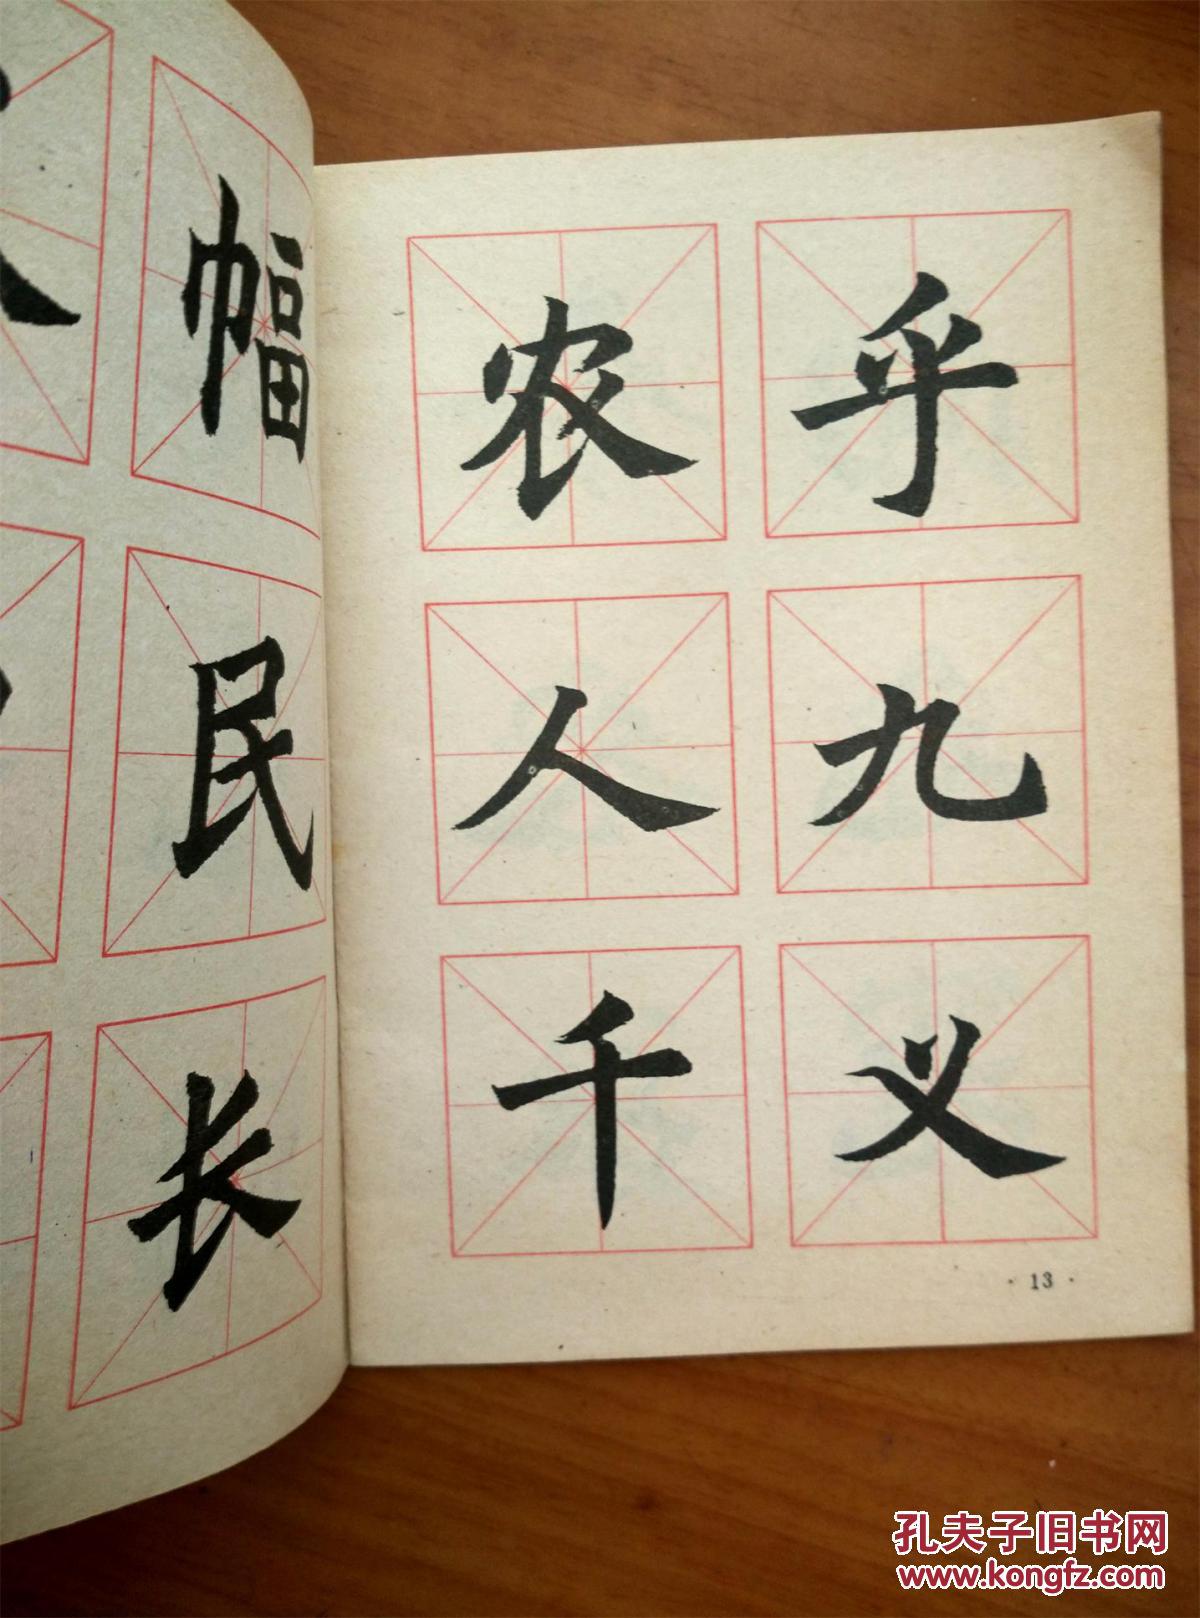 幅
民
长
农 乎
人 九
千 义
· 13 ·
孔夫子旧书网
www.kongfz.com